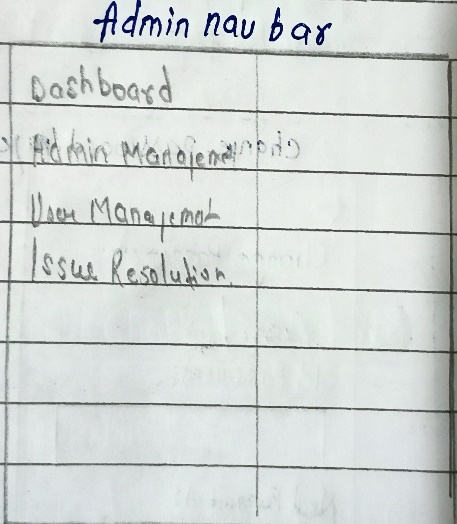 Admin nav bar
Dashboard
Admin Managemet
User Managemat
Issue Resolution.